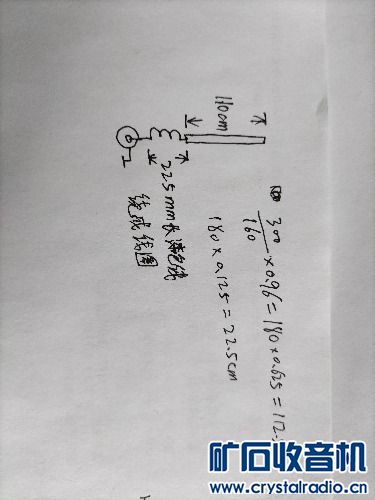 110cm
225mm长漆包线
绕成线圈
300/160×0.96=180×0.625=112.
180×0.125=22.5cm
矿石收音机
www.crystalradio.cn